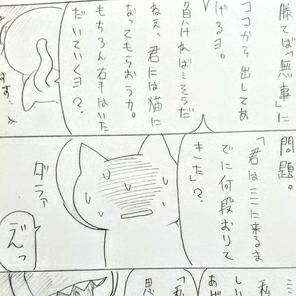 勝てば「無事」に
ココから出してあ
げるヨ。
負ければ…そうだ
ねぇ、君には猫に
なってもらおうカ。
もちろん右手はいた
だいていくヨ?、
問題。
「君はここに来るま
でに何段おりて
きた」?、
グラァ
えっ